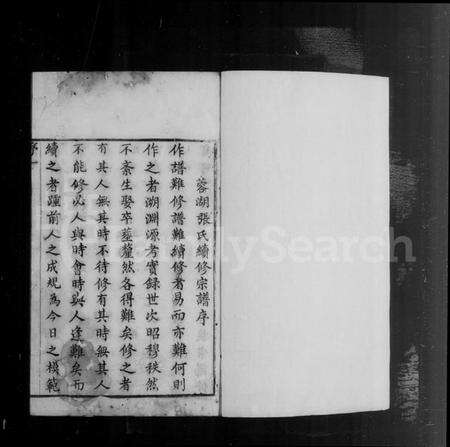 蓉湖張氏續修宗譜序
作譜難修譜難續修者易而亦難何則
作之者溯淵源考實錄世次昭穆秩然
不紊生娶卒塟釐然各得難矣修之者
有其人無其時不待修有其時無其人
不能修必人與時會時與人逢難矣而
續之者踵前人之成規為今日之模範
序一
MySearch